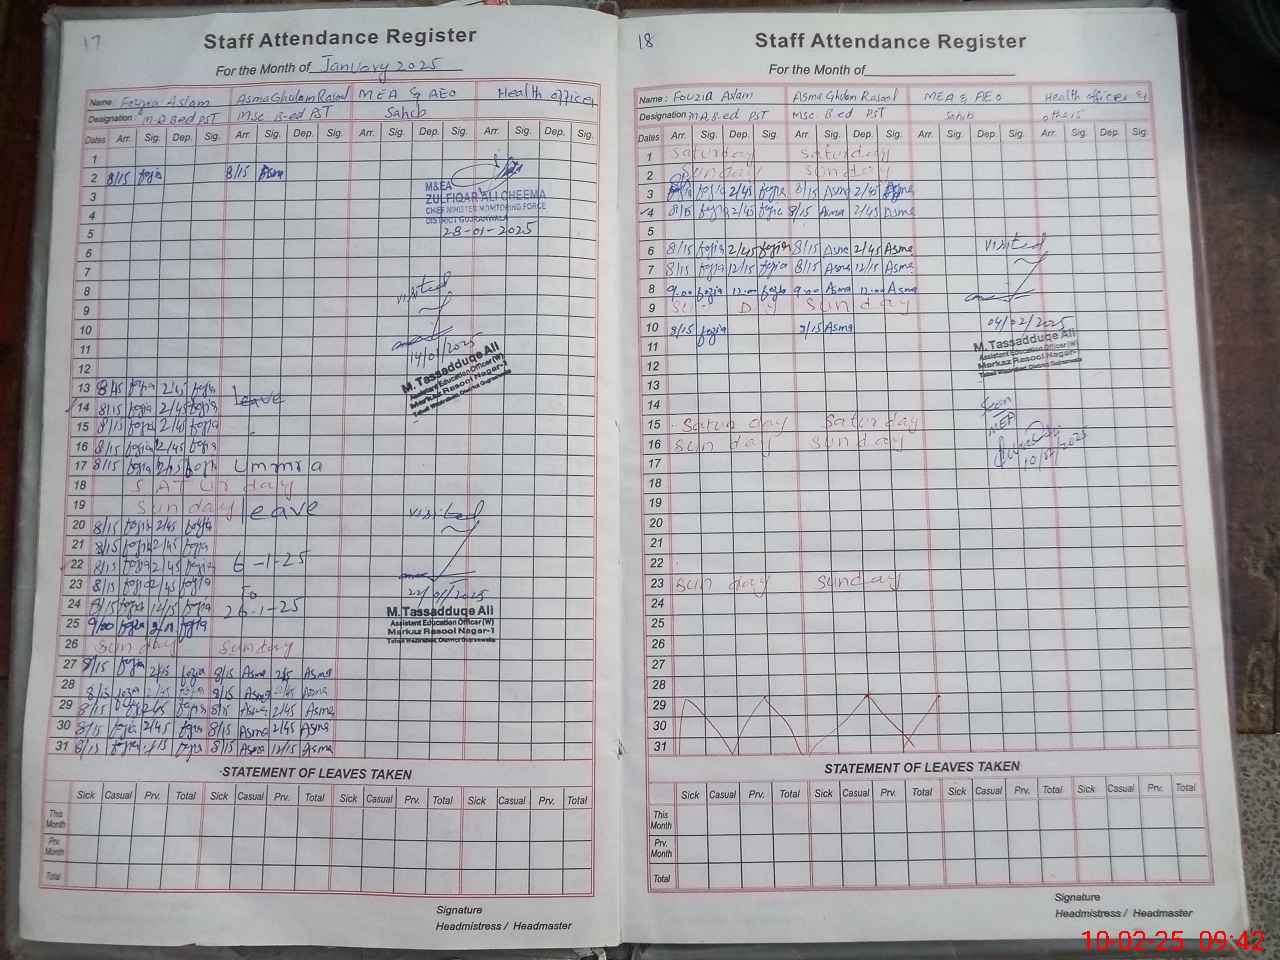 17
Staff Attendance Register
For the Month of January 2025
Name: Fouzia Aslam Asma Ghulam Rasool MEA & AEO Health officer
Designation: M.A B.ed PST MSc B-ed PST Sahib
Dates Arr. Sig. Dep. Sig. Arr. Sig. Dep. Sig. Arr. Sig. Dep. Sig. Arr. Sig. Dep. Sig.
1
2 8/15 fozia 8/15 Asma
3
4
5
M&EA
ZULFIQAR ALI CHEEMA
CHIEF MINISTER MONITORING FORCE
DISTRICT GUJRANWALA
28-01-2025
6
7
8
9
10
11
12
visited
14/01/2025
M. Tassadduqe Ali
Assistant Education Officer (W)
Markaz Rasool Nagar-1
13 8/45 fozia 2/45 fozia
14 8/15 fozia 2/45 fozia Leave
15 8/15 fozia 2/45 fozia
16 8/15 fozia 2/45 fozia
17 8/15 fozia 2/45 fozia Ummra
18 SATUrday
19 Sunday leave
20 8/15 fozia 2/45 fozia
21 8/15 fozia 2/45 fozia
22 8/15 fozia 2/45 fozia 6-1-25
23 8/15 fozia 2/45 fozia To
24 8/15 fozia 12/15 fozia 26-1-25
25 9/00 fozia fozia
visited
22/01/2025
M.Tassadduqe Ali
Assistant Education Officer (W)
Markaz Rasool Nagar-1
Tehsil Wazirabad, District Gujranwala
26 Sunday Sunday
27 8/15 fozia 2/45 fozia 8/15 Asma 2/45 Asma
28 8/15 fozia 2/45 fozia 8/15 Asma 2/45 Asma
29 8/15 fozia 2/45 fozia 8/15 Asma 2/45 Asma
30 8/15 fozia 2/45 fozia 8/15 Asma 2/45 Asma
31 8/15 fozia fozia 8/15 Asma 12/15 Asma
STATEMENT OF LEAVES TAKEN
Sick Casual Prv. Total Sick Casual Prv. Total Sick Casual Prv. Total Sick Casual Prv. Total
This Month
Prv. Month
Total
Signature
Headmistress / Headmaster
18
Staff Attendance Register
For the Month of
Name: Fouzia Aslam Asma Ghulam Rasool MEA & AEO Health officer &
Designation M.A.B.ed PST MSc B.ed PST Sahib others
Dates Arr. Sig. Dep. Sig. Arr. Sig. Dep. Sig. Arr. Sig. Dep. Sig. Arr. Sig. Dep. Sig.
1 Saturday Saturday
2 Sunday Sunday
3 fozia 2/45 fozia 8/15 Asma 2/45 Asma
4 8/15 fozia 2/45 fozia 8/15 Asma 2/45 Asma
5
6 8/15 fozia 2/45 fozia 8/15 Asma 2/45 Asma
7 8/15 fozia 12/15 fozia 8/15 Asma 12/15 Asma
8 9.00 fozia 12.00 fozia 9.00 Asma 12.00 Asma
9 Sunday
10 8/15 fozia 8/15 Asma
visited
04/02/2025
M. Tassadduqe Ali
Assistant Education Officer (W)
Markaz Rasool Nagar-1
Tehsil Wazirabad, District Gujranwala
11
12
13
14
15 Saturday Saturday
16 Sunday Sunday
Seen
MEA
10/02/2025
17
18
19
20
21
22
23 Sunday Sunday
24
25
26
27
28
29
30
31
STATEMENT OF LEAVES TAKEN
Sick Casual Prv. Total Sick Casual Prv. Total Sick Casual Prv. Total Sick Casual Prv. Total
This Month
Prv. Month
Total
Signature
Headmistress / Headmaster
10-02-25 09:42